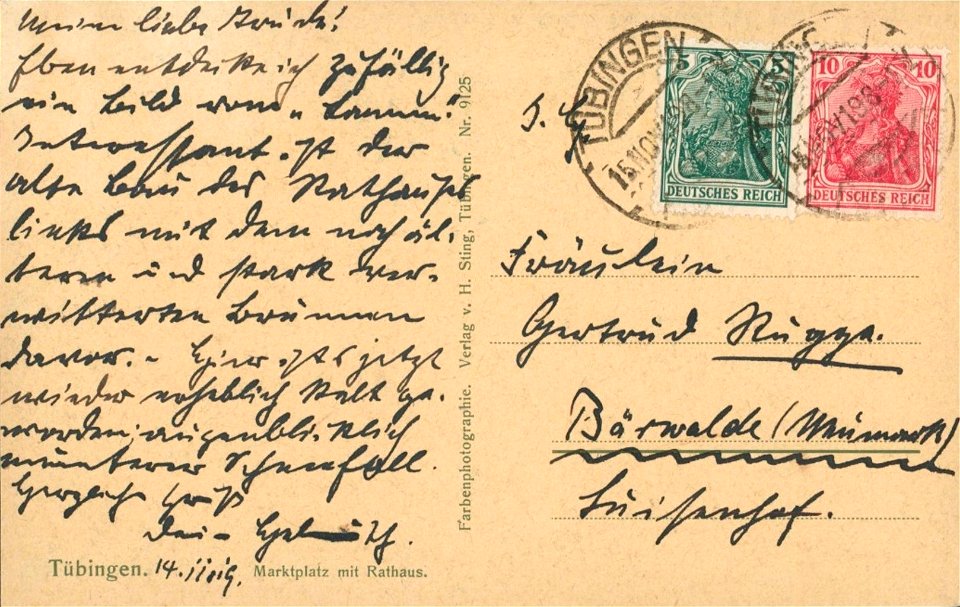 Meine liebe Trude!
Eben entdecke ich zufällig
ein Bild vom „Lamm".
Interessant ist der
alte Bau des Rathauses
links mit dem noch äl-
teren und stark ver-
witterten Brunnen
davor. - Hier ists jetzt
wieder erheblich kalt ge-
worden; augenblicklich
munterer Schneefall.
Herzlich Gruß
Dein Helmuth.
Tübingen. 14.11.19. Marktplatz mit Rathaus.
Farbenphotographie. Verlag v. H. Sting, Tübingen. Nr. 9125
TÜBINGEN
15 NOV
5 5
DEUTSCHES REICH
10 10
DEUTSCHES REICH
Fräulein
Gertrud
Bärwalde (Neumark)
Luisenhof.